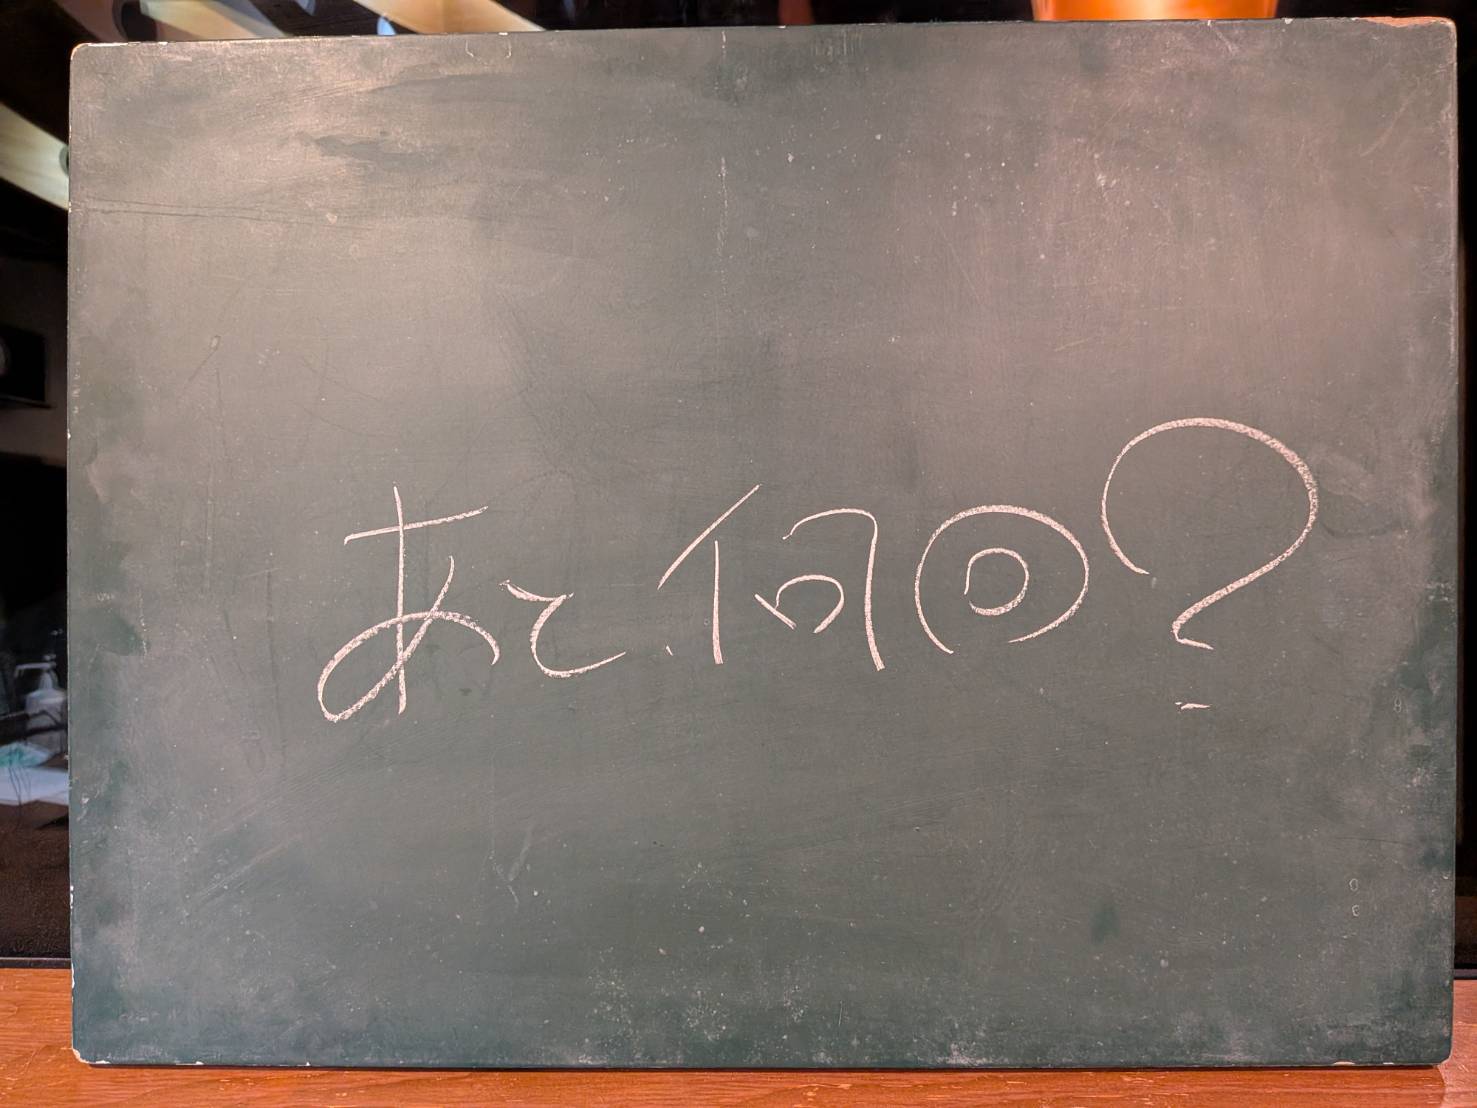 あと何回?